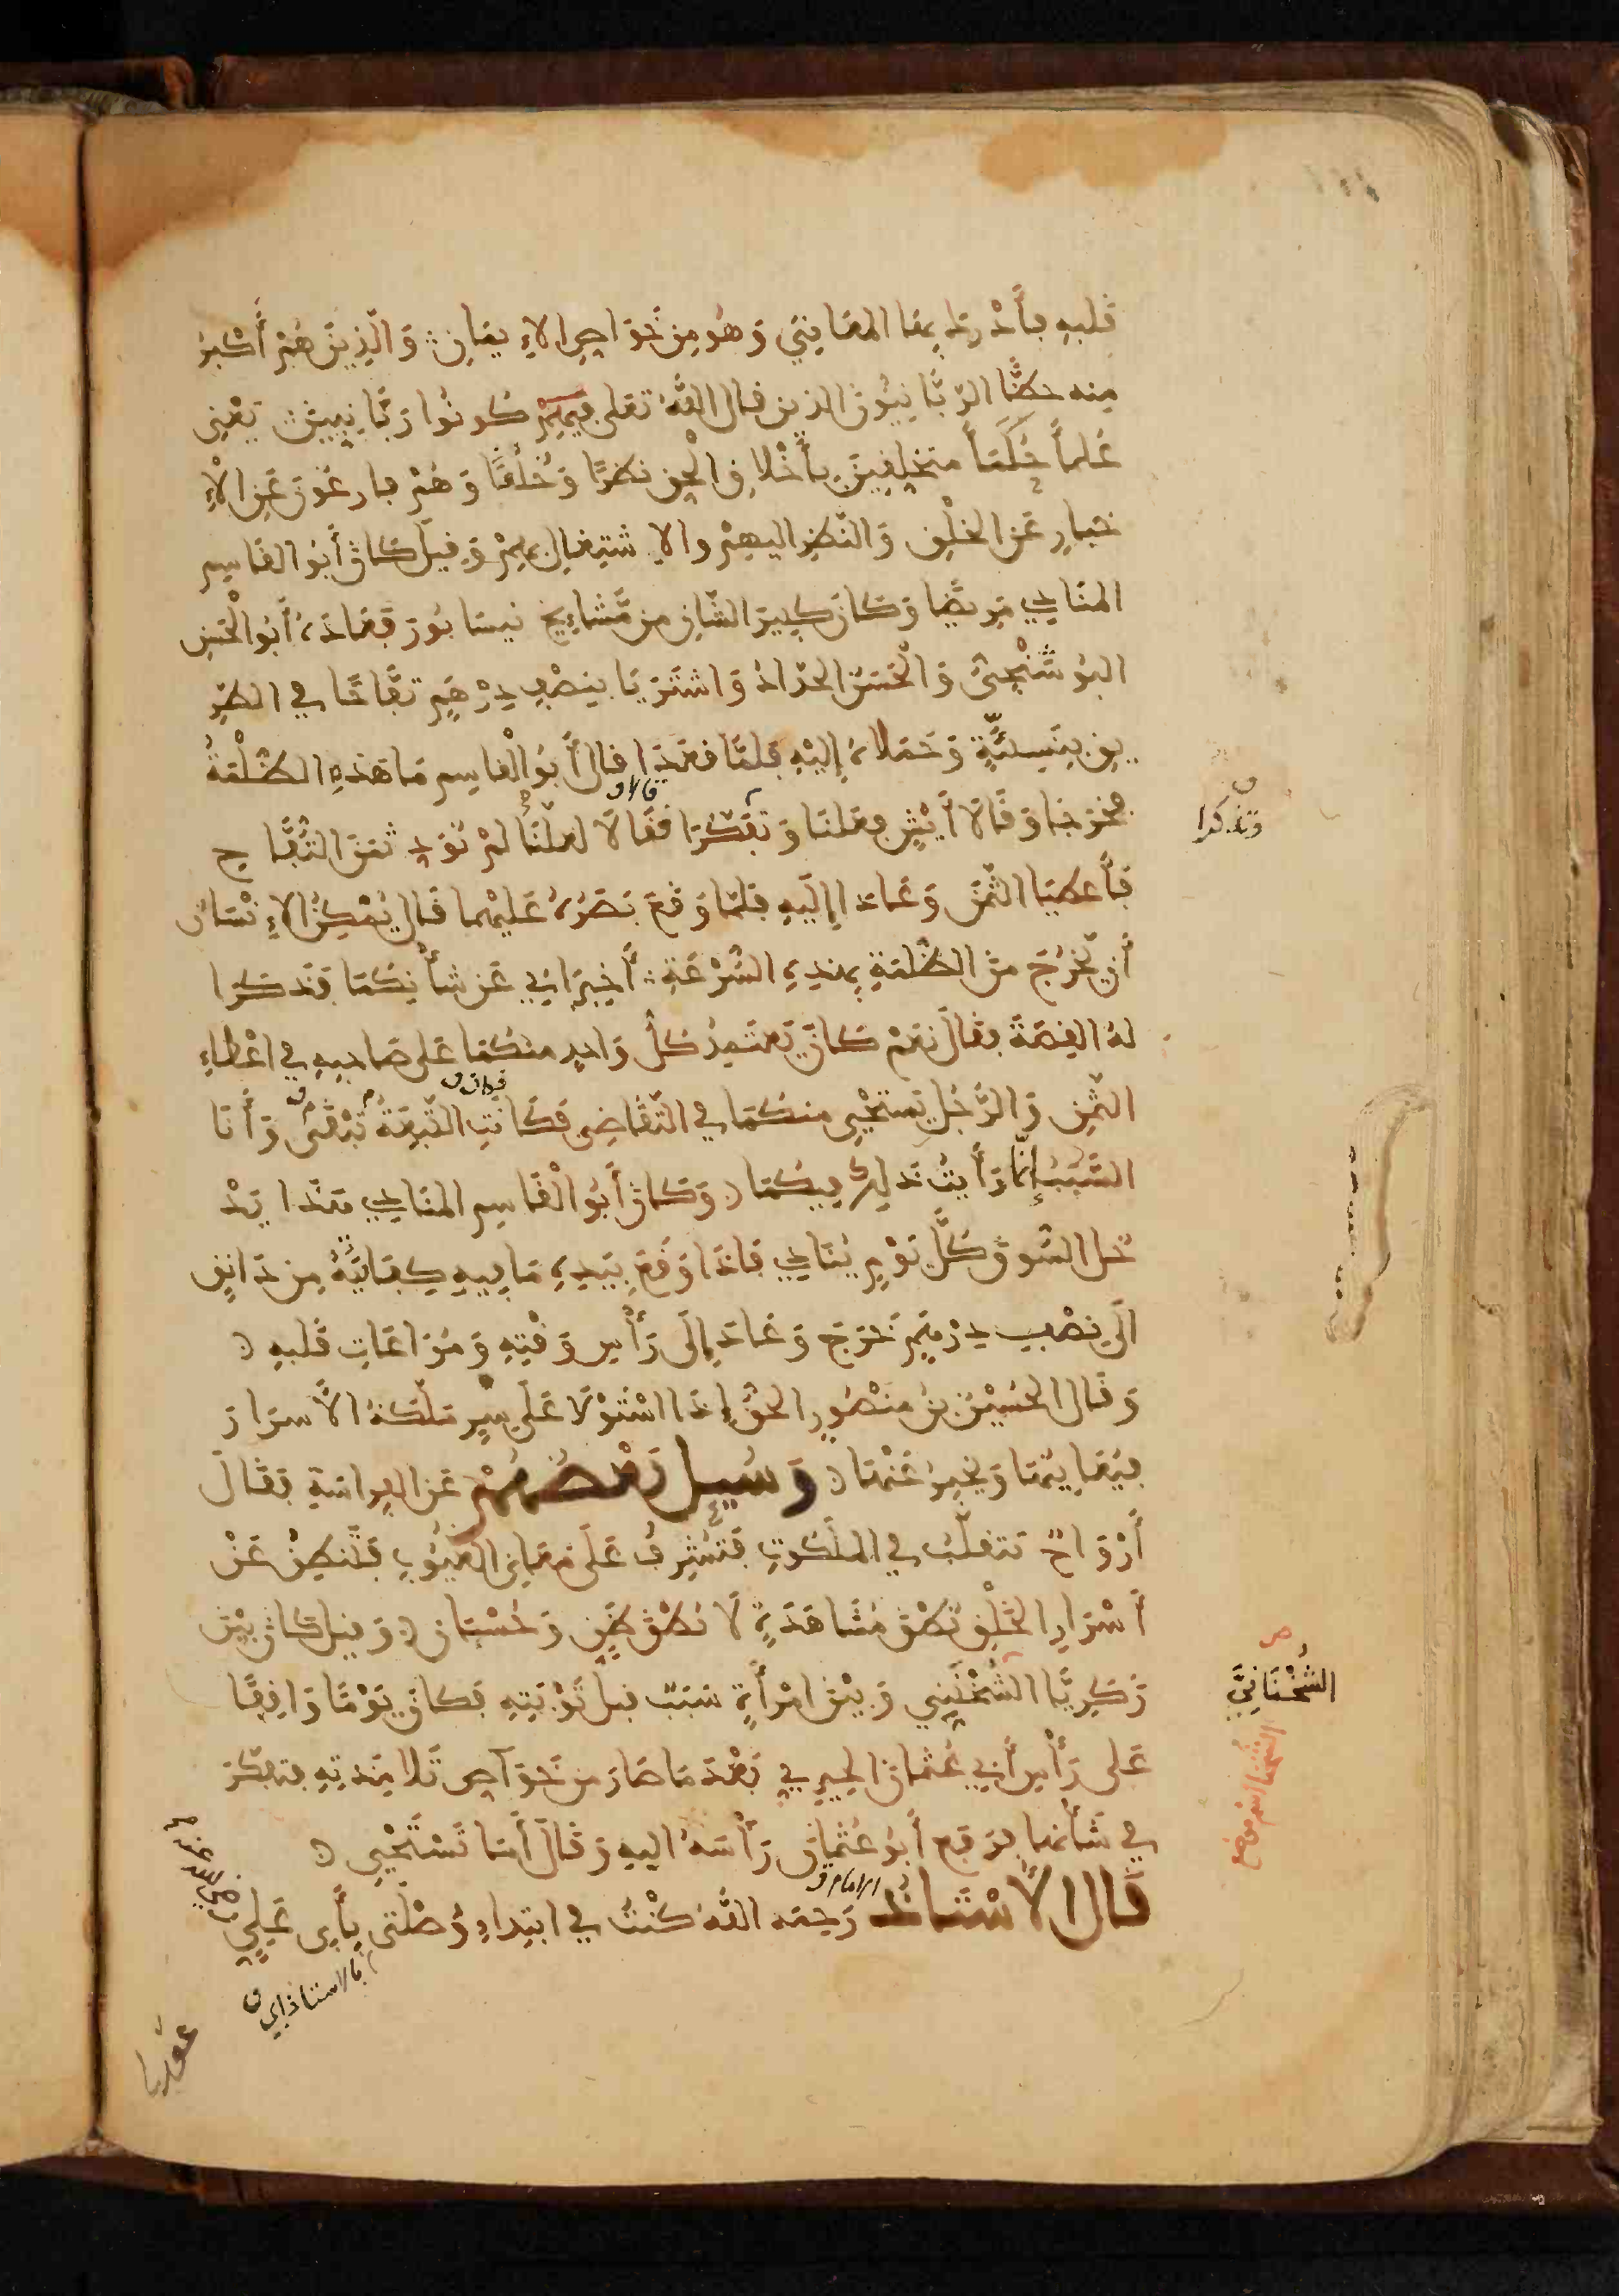 قلبه فأدرك بها المعاني وهو من خواص الإيمان والذين هم أكبر
منه حظا الربانيون الذين قال الله تعلى فيهم كونوا ربانيين يعني
علماء حكماء متخلقين بأخلاق الحق نظرا وخلقا وهم فارغون عن الإ
خبار عن الخلق والنظر اليهم والاشتغال بهم وقيل كان أبو القاسم
المنادي مريضا وكان كبير الشان من مشايخ نيسابور فعاده أبو الحسن
البوشنجي والحسن الحداد واشتريا بنصف درهم تفاحا في الطر
يق بنسيئة وحملاه إليه فلما قعدا قال أبو القاسم ما هذه الظلمة
فخرجا وقالا أيش فعلنا وتفكرا فقالا لعلنا لم نؤد ثمن التفاح
قالا ق
وتذكرا
فأعطيا الثمن وعادا إليه فلما وقع بصره عليهما قال يمكن الإنسان
أن يخرج من الظلمة بهذه السرعة أخبراني عن شأنكما فذكرا
له القصة فقال نعم كان يعتمد كل واحد منكما على صاحبه في اعطاء
الثمن والرجل يستحيي منكما في التقاضي فكانت التبعة تبقى وأنا
فكان ق
السبب إنما رأيت ذلك فيكما وكان أبو القاسم المنادي هذا يد
خل السوق كل يوم ينادي فاذا وقع بيده ما فيه كفاية من دانق
الى نصف درهم خرج وعاد إلى رأس وقته ومراعات قلبه
وقال الحسين بن منصور الحق إذا استولا على سر ملكه الأسرار
فيعاينها ويخبر عنها وسيل بعضهم عن الفراسة فقال
أرواح تتقلب في الملكوت فتشرف على معاني الغيوب فتنطق عن
أسرار الخلق نطق مشاهدة لا نطق ظن وحسبان وقيل كان بين
زكريا الشختني وبين امرأة سبب قبل توبته فكان يوما واقفا
الشختاني
على رأس أبي عثمان الحيري بعد ما صار من خواص تلامذته فتفكر
في شأنها فرفع أبو عثمان رأسه اليه وقال أما تستحيي
قال الأستاذ رحمه الله كنت في ابتداء وصلتي بأبى علي
الامام ق
رضي الله عنه
بالاستاذ ابي ق